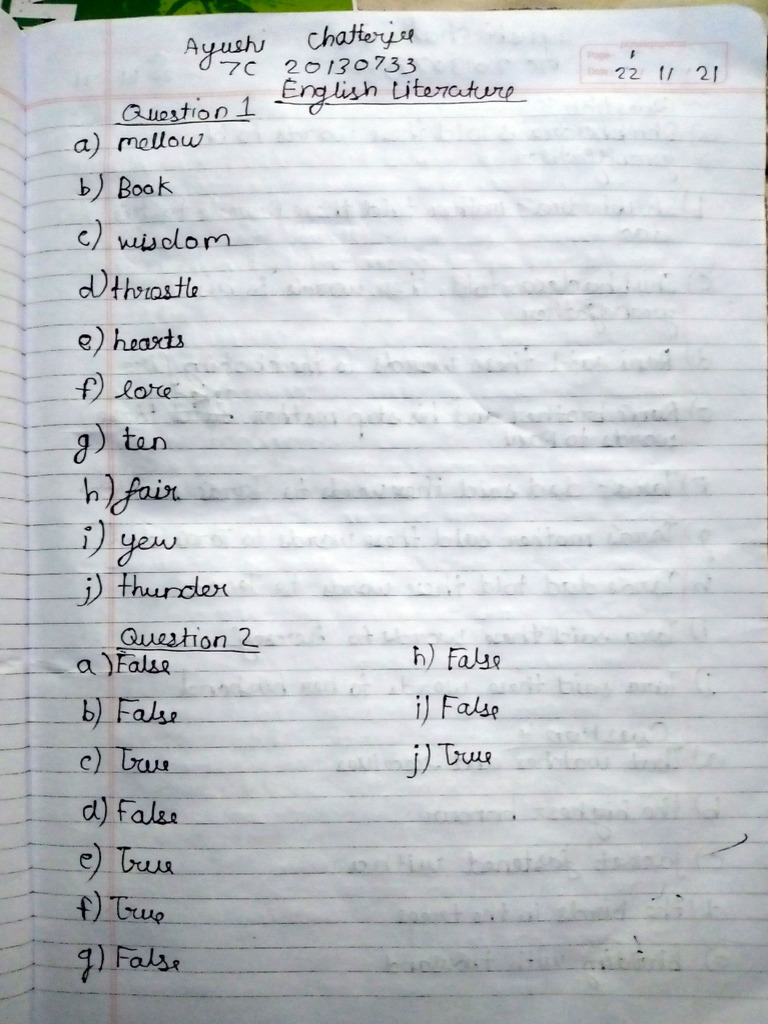 Ayushi Chatterjee
7C 20130733
22 11 21
English Literature
Question 1
a) mellow
b) Book
c) wisdom
d) throstle
e) hearts
f) lore
g) ten
h) fair
i) yew
j) thunder
Question 2
a) False
b) False
c) True
d) False
e) True
f) True
g) False
h) False
i) False
j) True